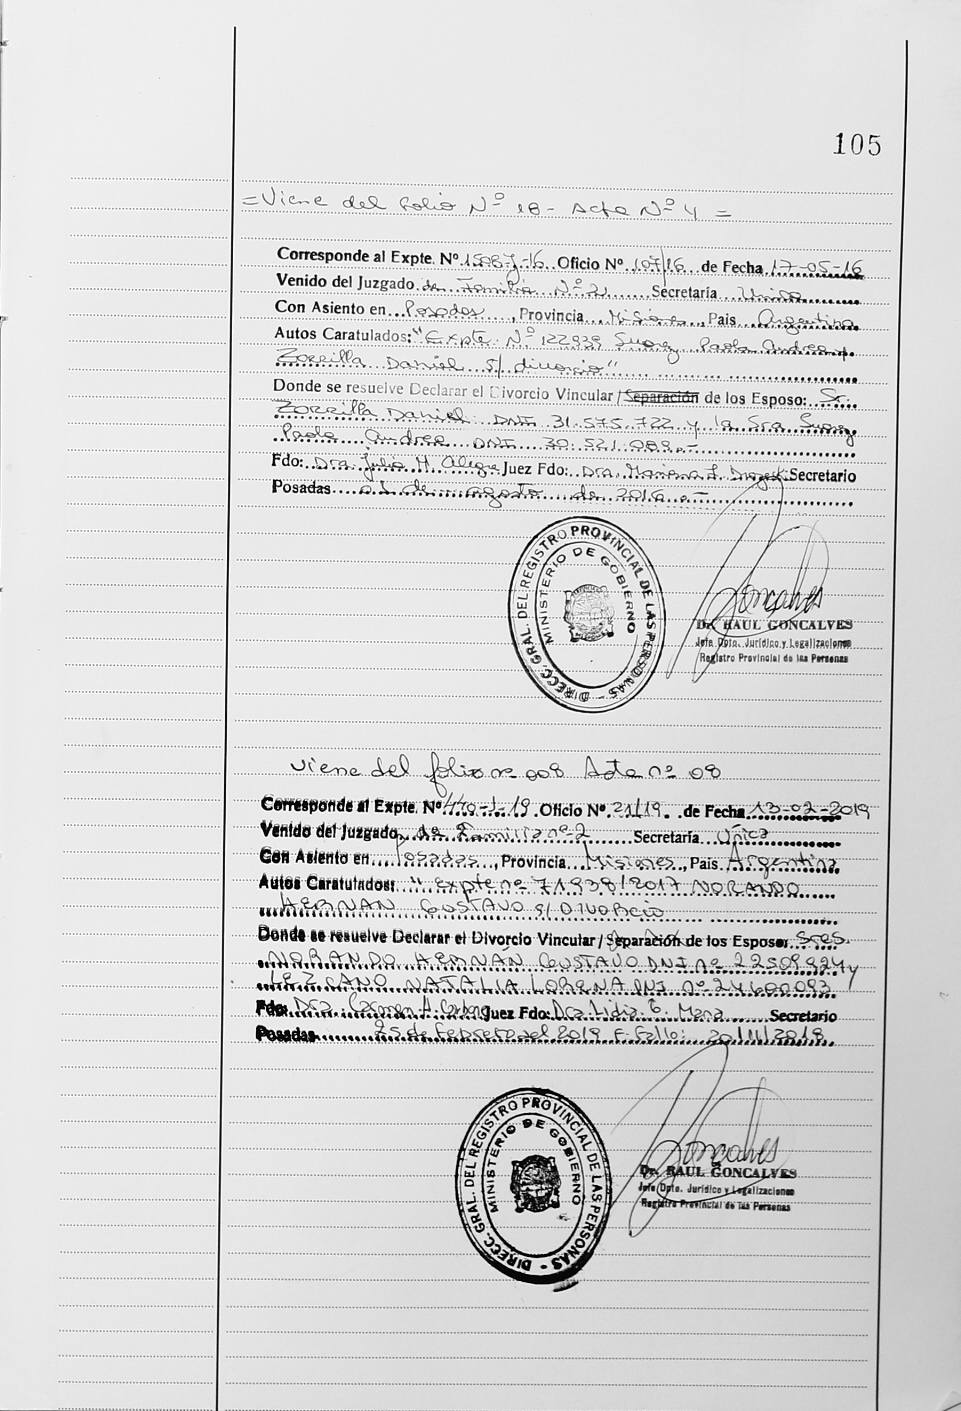 105
= Viene del folio Nº 18 - Acta Nº 4 =
Corresponde al Expte. Nº 1508-J-16 Oficio Nº 107/16 de Fecha 17-05-16
Venido del Juzgado de Familia Nº 2 Secretaría Unica
Con Asiento en Posadas, Provincia Misiones, País Argentina
Autos Caratulados: "Expte. Nº 122939 Suarez Paola Andrea y
Zorrilla Daniel S/ divorcio"
Donde se resuelve Declarar el Divorcio Vincular / Separación de los Esposo: Sr.
Zorrilla Daniel DNI 31.575.722 y la Sra Suarez
Paola Andrea DNI 30.521.089.-
Fdo: Dra. Julia H. Alegre Juez Fdo: Dra. Mariana L. Secretario
Posadas 01 de agosto de 2016.-
DIRECC. GRAL. DEL REGISTRO PROVINCIAL DE LAS PERSONAS -
MINISTERIO DE GOBIERNO
Goncalves
Dr. RAUL GONCALVES
Jefe Dpto. Jurídico y Legalizaciones
Registro Provincial de las Personas
Viene del folio nº 008 Acta nº 08
Corresponde al Expte. Nº 440-J-19 Oficio Nº 21/19. de Fecha 13-02-2019
Venido del Juzgado de Familia nº 2 Secretaría Única
Con Asiento en Posadas, Provincia Misiones, País Argentina
Autos Caratulados: "Expte nº 71938/2017 MORANDO
HERNAN GUSTAVO S/ DIVORCIO
Donde se resuelve Declarar el Divorcio Vincular / Separación de los Esposo: Sres.
MORANDO HERNÁN GUSTAVO DNI nº 22509924 y
LEZCANO NATALIA LORENA DNI nº 24600093
Fdo: Dra. Carmen H. Juez Fdo: Dra. Lidia E. Secretario
Posadas 25 de Febrero del 2019 F. Fallo: 20/11/2018
DIRECC. GRAL. DEL REGISTRO PROVINCIAL DE LAS PERSONAS -
MINISTERIO DE GOBIERNO
Goncalves
Dr. RAUL GONCALVES
Jefe Dpto. Jurídico y Legalizaciones
Registro Provincial de las Personas